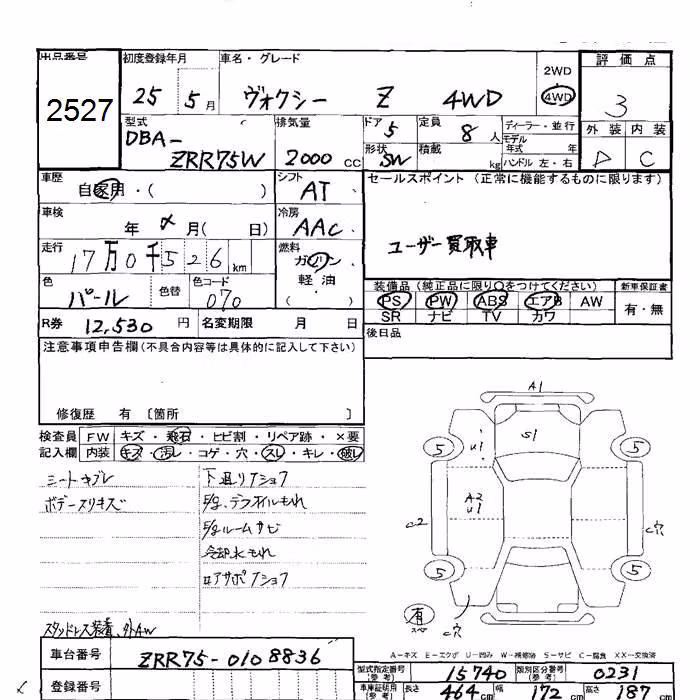 出品番号 初度登録年月 車名・グレード 2WD 評価点
2527 25 5月 ヴォクシー Z 4WD 4WD 3
型式 排気量 ドア 5 定員 8人 ディーラー・並行 外装 内装
DBA- モデル年式 年 C
ZRR75W 2000 CC 形状 SW 積載 kg ハンドル 左・右
車歴 シフト セールスポイント(正常に機能するものに限ります)
自家用・( ) AT
車検 冷房
年 月( 日) AAC
走行 燃料 ユーザー買取車
17万0千526km ガソリン・
軽油・
( )
色 色替 色コード 装備品(純正品に限り○をつけてください) 新車保証書
パール 070 PS PW ABS エアB AW 有・無
SR ナビ TV カワ
R券 12,530円 名変期限 月 日 後日品
注意事項申告欄(不具合内容等は具体的に記入して下さい)
修復歴 有 〔箇所 〕
検査員 FW キズ・飛石・ヒビ割・リペア跡・×要
記入欄 内装 キズ・汚レ・コゲ・穴・スレ・キレ・破レ
シートキブレ 下廻り
ボデースリキズ
ルームサビ
冷却水もれ
スタッドレス装着、外AW
A1
5 U1 S1 5
A2
U1
C2 C穴
5 5
有 C穴
A-キズ E-エクボ U-凹み W-補修跡 S-サビ C-腐食 XX-交換済
車台番号 ZRR75-0108836 型式指定番号(参考) 15740 類別区分番号(参考) 0231
登録番号 車庫証明用(参考) 長さ 464cm 幅 172cm 高さ 187cm